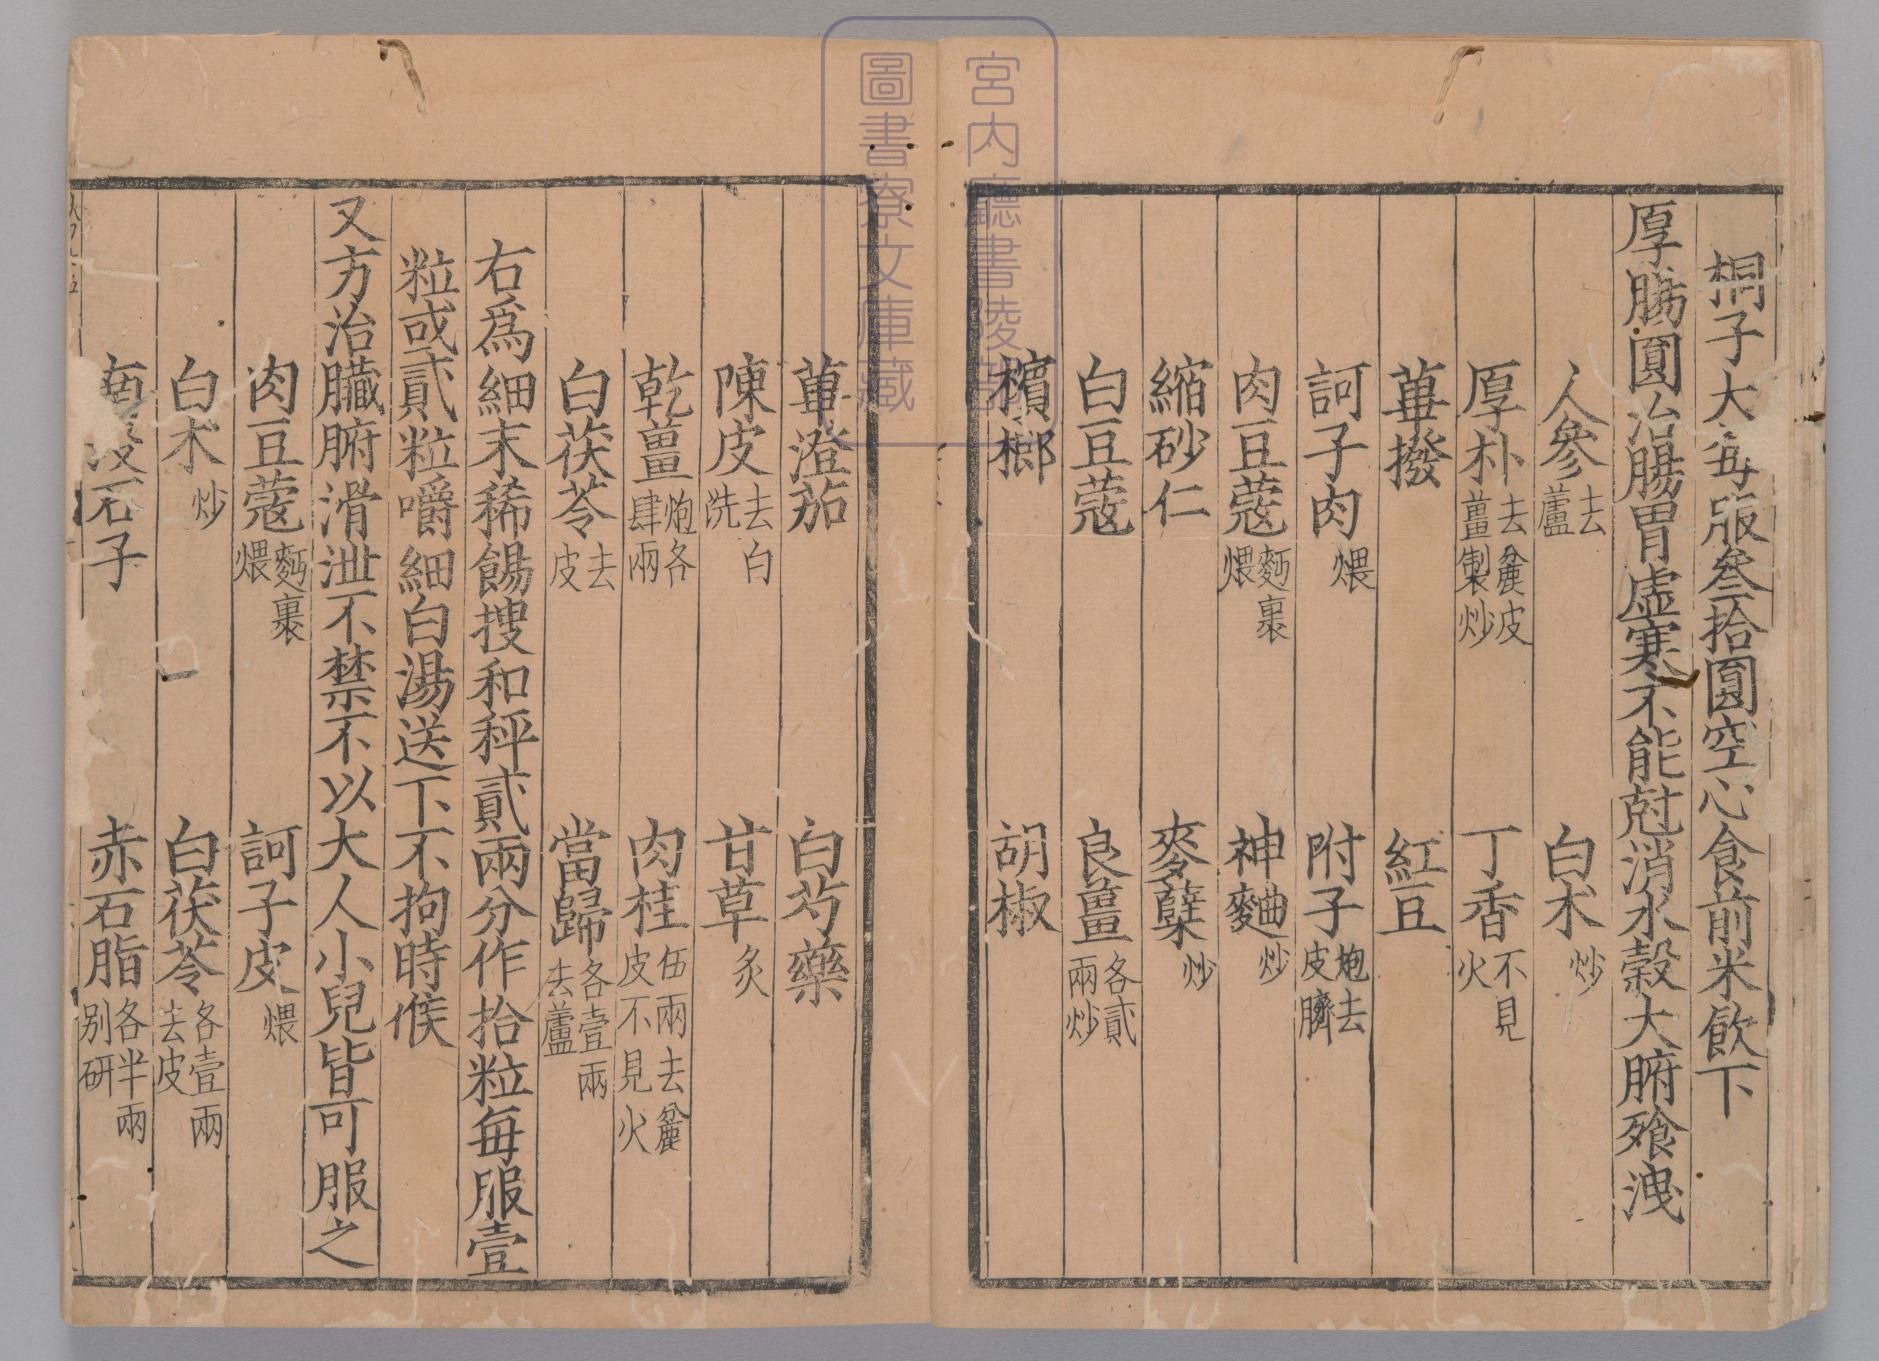 桐子大每服叄拾圓空心食前米飲下
厚腸圓治腸胃虛寒不能尅消水穀大腑飱洩
人參去蘆 白朮炒
厚朴去麄皮薑製炒 丁香不見火
蓽撥 紅豆
訶子肉煨 附子炮去皮臍
肉豆蔻麪裹煨 神麯炒
縮砂仁 麥糵炒
白豆蔻 良薑各貳兩炒
檳榔 胡椒
蓽澄茄 白芍藥
陳皮去白洗 甘草炙
乾薑炮各肆兩 肉桂伍兩去麄皮不見火
白茯苓去皮 當歸各壹兩去蘆
右爲細末稀餳搜和秤貳兩分作拾粒每服壹
粒或貳粒嚼細白湯送下不拘時候
又方治臟腑滑泄不禁不以大人小兒皆可服之
肉豆蔻麪裹煨 訶子皮煨
白朮炒 白茯苓各壹兩去皮
石子 赤石脂各半兩別研
宮內廳書陵部
圖書寮文庫藏